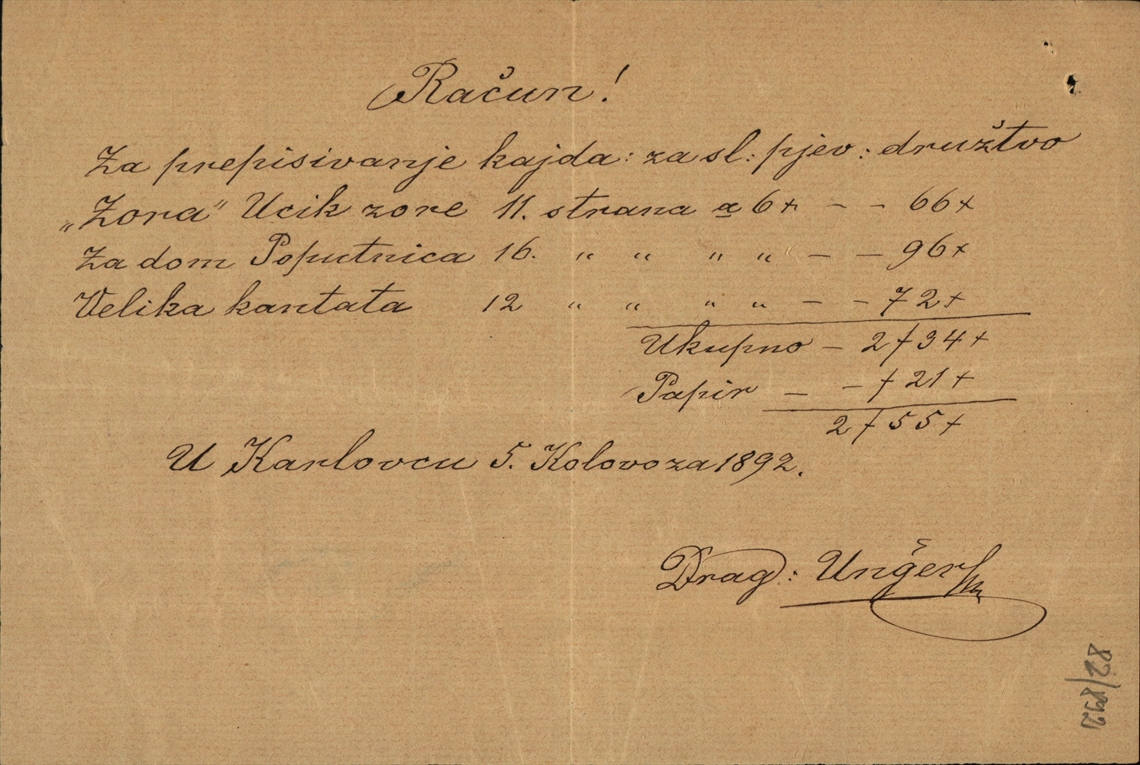 Račun!
Za prepisivanje kajda: za sl: pjev: družtvo
„Zora" Ucik zore 11. strana a 6x – – 66x
Za dom Poputnica 16. " " " " – – 96x
Velika kantata 12 " " " " – – 72x
Ukupno – 2f34x
Papir – – f21x
2f55x
U Karlovcu 5. Kolovoza 1892.
Drag: Unğer
82/892